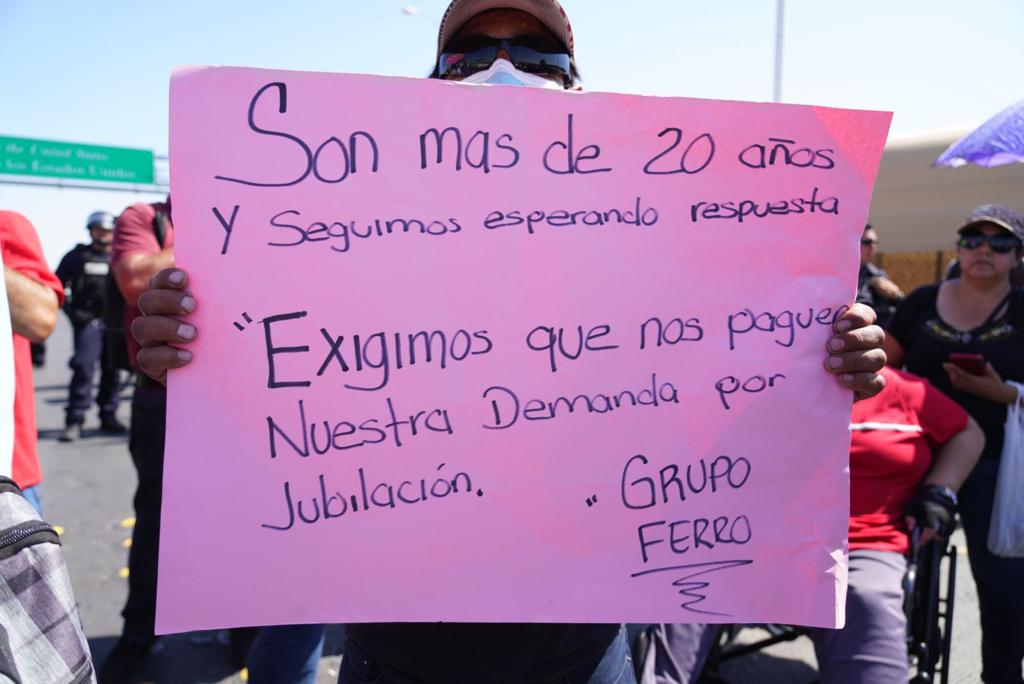 Son mas de 20 años
Y Seguimos esperando respuesta
"Exigimos que nos paguen
Nuestra Demanda por
Jubilación. " GRUPO
FERRO